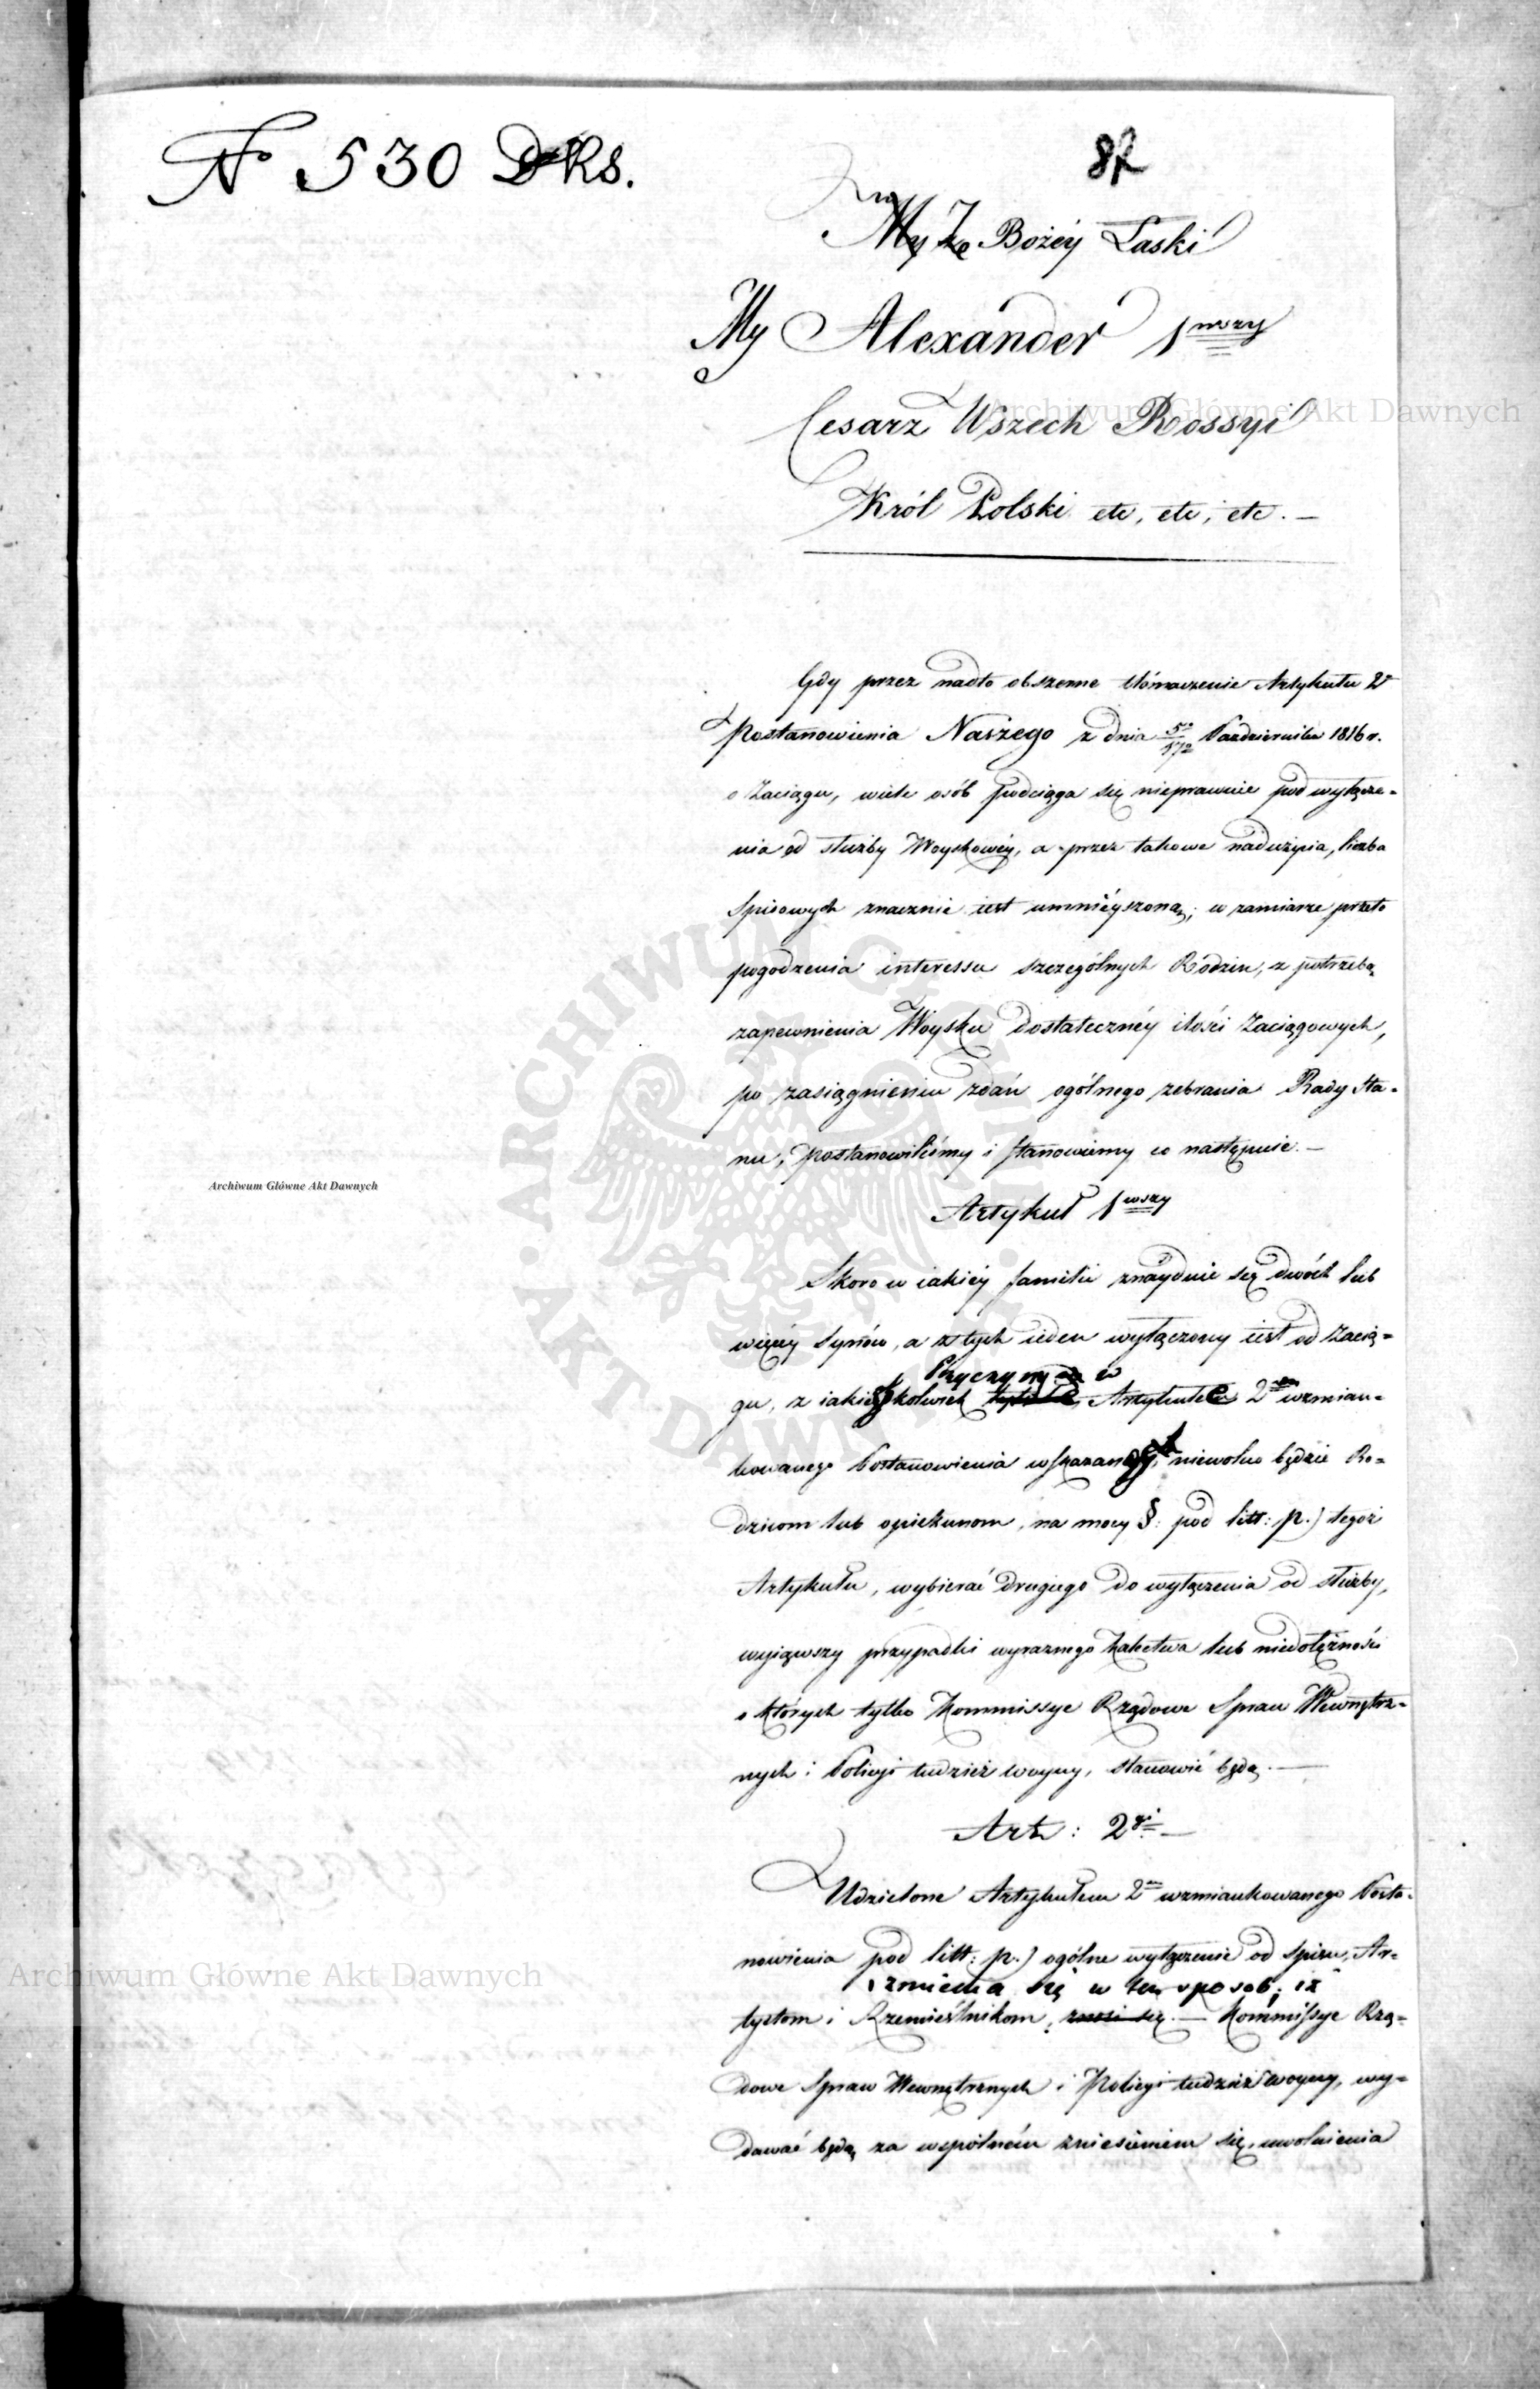 № 530 D RS.
87
My Z Bożéy Łaski
My Alexander 1wszy
Cesarz Wszech Rossyi
Król Polski etc, etc, etc. —
Gdy przez nadto obszerne tłómaczenie Artykułu 2o
Postanowienia Naszego z dnia 5go/17go Października 1816 r.
o Zaciągu, wiele osób podciąga się nieprawnie pod wyłącze=
nia od służby Woyskowéy, a przez takowe nadużycia, liczba
Spisowych znacznie iest umnieyszoną; w zamiarze przeto
pogodzenia interessu szczególnych Rodzin, z potrzebą
zapewnienia Woysku dostatecznéy ilości Zaciągowych,
po zasiągnieniu zdań ogólnego zebrania Rady Sta=
nu, postanowiliśmy i stanowiemy co następuie. —
Artykuł 1wszy
Skoro w iakiéy familii znayduie się dwóch lub
więcéy Synów, a z tych ieden wyłączony iest od Zacią=
Przyczyny w
gu, z iakiéykolwiek Artykule 2m wzmian=
kowanego Postanowienia wskazanéy, niewolno będzie Ro=
dzicom lub opiekunom, na mocy §: pod litt: p.) tegoż
Artykułu, wybierać drugiego do wyłączenia od służby,
wyiąwszy przypadki wyraznego kalectwa lub niedołężności
o których tylko Kommissye Rządowe Spraw Wewnętrz=
nych i Policyi tudzież Woyny, stanowić będą. —
Art: 2gi —
Udzielone Artykułem 2m wzmiankowanego Posta=
nowienia pod litt: p.) ogólne wyłączenie od spisu, Ar=
zmienia się w ten sposób, iż
tystom i Rzemieślnikom, znosi się. — Kommissye Rzą=
dowe Spraw Wewnętrznych i Policyi tudzież Woyny, wy=
dawać będą za wspólném zniesieniem się, uwolnienia
Archiwum Główne Akt Dawnych
Archiwum Główne Akt Dawnych
Archiwum Główne Akt Dawnych